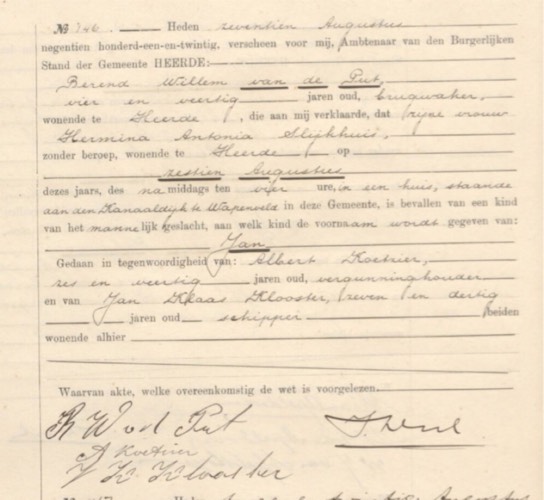 № 746. Heden zeventien Augustus
negentien honderd-een-en-twintig, verscheen voor mij, Ambtenaar van den Burgerlijken
Stand der Gemeente HEERDE:
Berend Willem van de Put,
vier en veertig jaren oud, brugwaker,
wonende te Heerde, die aan mij verklaarde, dat zijne vrouw
Hermina Antonia Slijkhuis,
zonder beroep, wonende te Heerde op
zestien Augustus
dezes jaars, des na middags ten vier ure, in een huis, staande
aan den Kanaaldijk te Wapenveld in deze Gemeente, is bevallen van een kind
van het mannelijk geslacht, aan welk kind de voornaam wordt gegeven van:
Jan.
Gedaan in tegenwoordigheid van: Albert Koetsier,
zes en veertig jaren oud, vergunninghouder
en van Jan Klaas Klooster, zeven en dertig
jaren oud schipper beiden
wonende alhier
Waarvan akte, welke overeenkomstig de wet is voorgelezen.
B W vd Put
A Koetsier
J K Klooster
Heden Augustus